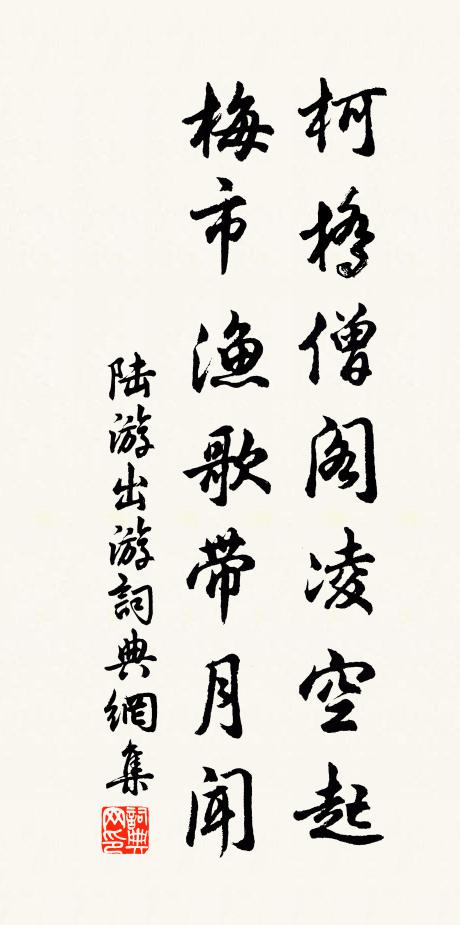 柯橋僧阁凌空起
梅市漁歌帶月闻
陆游出游詞典網集
詞典网印